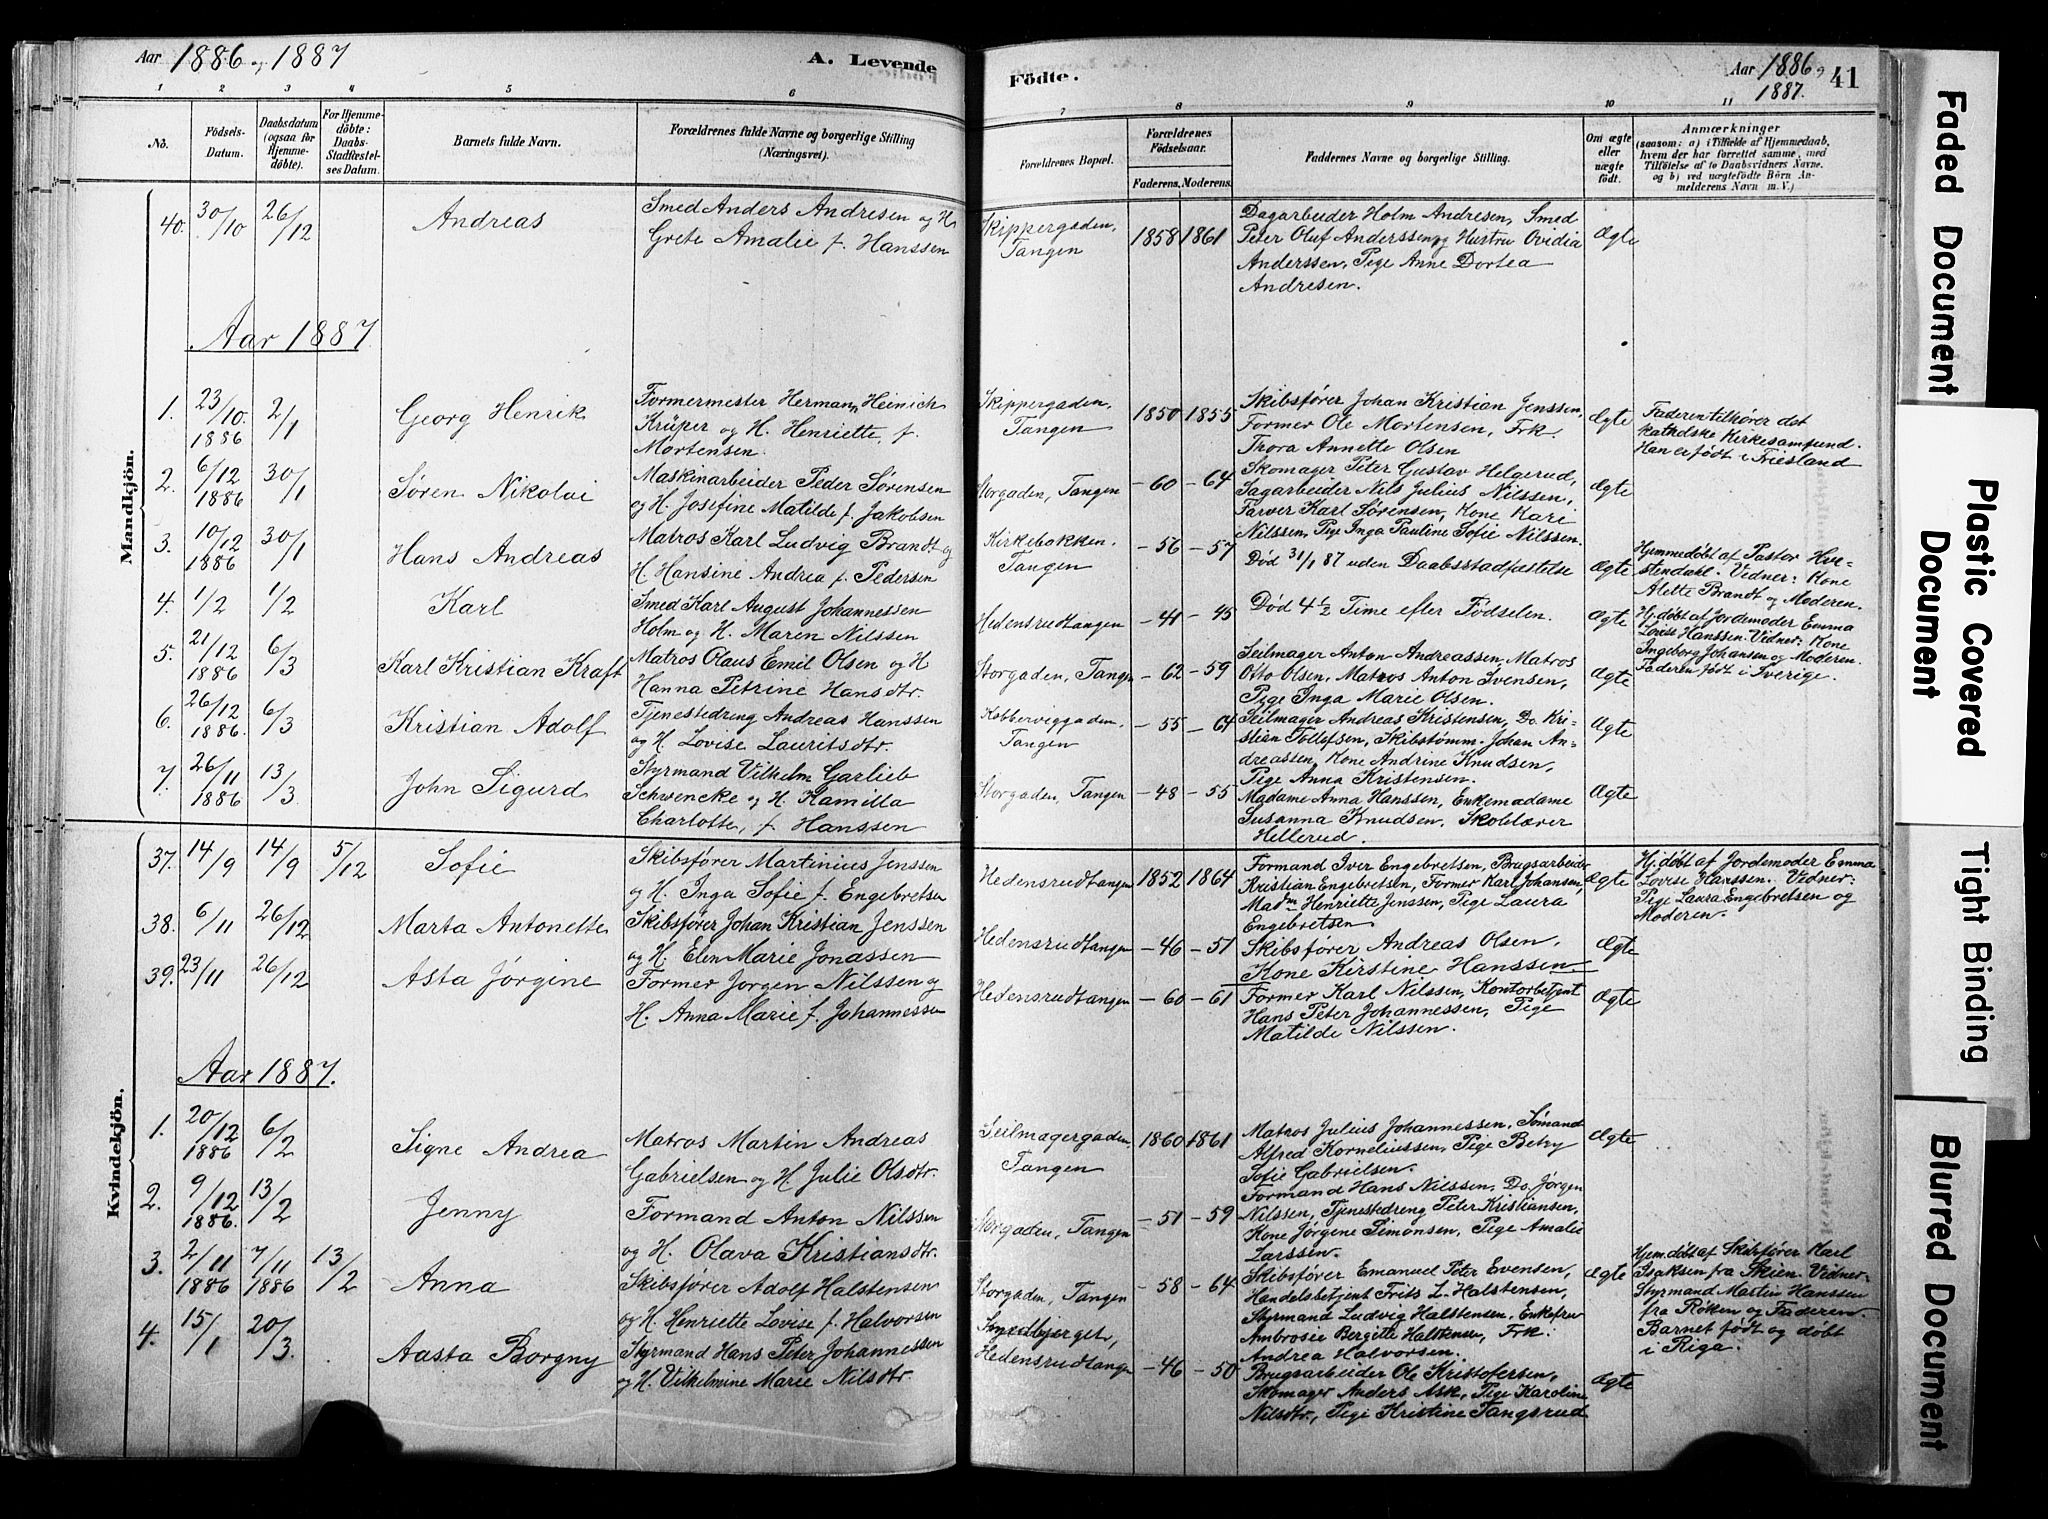 Aar 1886 og 1887
A. Levende
Födte.
Aar 1886 og 1887.
41
1
2
3
4
5
6
7
8
9
10
11
No.
Födsels-
Datum.
Daabsdatum
(ogsaa for
Hjemme-
döbte).
For Hjemme-
döbte:
Daabs-
Stadfæstel-
ses Datum.
Barnets fulde Navn.
Forældrenes fulde Navne og borgerlige Stilling
(Næringsvei).
Forældrenes Bopæl.
Forældrenes
Födselsaar.
Faderens.
Moderens.
Faddernes Navne og borgerlige Stilling.
Om ægte
eller
uægte
födt.
Anmærkninger
(saasom: a) i Tilfælde af Hjemmedaab,
hvem der har forrettet samme, med
Tilföielse af to Daabsvidners Navne,
og b) ved uægtefödte Börn An-
melderens Navn m. V.)
Mandkjön.
40. 30/10 26/12 Andreas
Smed Anders Andresen og H.
Grete Amalie f. Hanssen
Skippergaden,
Tangen
1858 1861
Dagarbeider Holm Andresen, Smed
Peter Oluf Anderssen og Hustru Ovidia
Anderssen, Pige Anne Dortea
Andresen.
Ægte
Aar 1887
1. 23/10 1886 2/1 Georg Henrik
Formermester Hermann Heinich
Krüper og H. Henriette, f.
Mortensen.
Skippergaden,
Tangen
1850 1855
Skibsfører Johan Kristian Jenssen,
Former Ole Mortensen, Frk.
Thora Annette Olsen
Ægte
Faderen tilhører det
katholske Kirkesamfund.
Han er født i Friesland
2. 6/12 1886 30/1 Søren Nikolai
Maskinarbeider Peder Sørensen
og H. Josefine Matilde f. Jakobsen
Storgaden, Tangen
- 60 - 64
Skomager Peter Gustav Helgerud,
Sagarbeider Nils Julius Nilssen,
Farver Karl Sørensen, Kone Kari
Nilssen, Pige Inga Pauline Sofie Nilssen.
Ægte
3. 10/12 1886 30/1 Hans Andreas
Matros Karl Ludvig Brandt og
H. Hansine Andrea f. Pedersen
Kirkebakken,
Tangen
- 56 - 57
Død 31/1 87 uden Daabsstadfæstelse
Ægte
Hjemmedøbt af Pastor Hve-
stendahl. Vidner: Kone
Alette Brandt og Moderen.
4. 1/2 1/2 Karl
Smed Karl August Johannessen
Holm og H. Maren Nilssen
Hedensrudtangen
- 41 - 45
Død 4 1/2 Time efter Fødselen.
Ægte
Hj. døbt af Jordemoder Emma
Lovise Hanssen. Vidner: Kone
Ingeborg Johansen og Moderen.
Faderen født i Sverige.
5. 21/12 1886 6/3 Karl Kristian Kraft
Matros Olaus Emil Olsen og H
Hanna Petrine Hansdtr.
Storgaden, Tangen
- 62 - 59
Seilmager Anton Andreassen, Matros
Otto Olsen, Matros Anton Svensen,
Pige Inga Marie Olsen.
Ægte
6. 26/12 1886. 6/3 Kristian Adolf
Tjenestedreng Andreas Hanssen
og H. Lovise Lauritsdtr.
Kobberviggaden,
Tangen
- 55 - 64
Seilmager Andreas Kristensen, Do. Kri-
stian Tollefsen, Skibstømm. Johan An-
dreassen, Kone Andrine Knudsen,
Pige Anna Kristensen.
Ægte
7. 26/11 1886 13/3 John Sigurd
Styrmand Vilhelm Garlieb
Schwencke og H. Kamilla
Charlotte, f. Hanssen
Storgaden, Tangen
- 48 - 55
Madame Anna Hanssen, Enkemadame
Susanna Knudsen, Skolelærer
Hellerud.
Ægte
Kvindekjön.
37. 14/9 14/9 5/12 Sofie
Skibsfører Martinius Jenssen
og H. Inga Sofie f. Engebretsen
Hedensrudtangen
1852 1864
Formand Iver Engebretsen, Brugsarbeider
Kristian Engebretsen, Former Karl Johansen,
Madm Henriette Jenssen, Pige Laura
Engebretsen.
Ægte
Hj. døbt af Jordemoder Emma
Lovise Hanssen. Vidner:
Pige Laura Engebretsen og
Moderen.
38. 6/11 26/12 Marta Antonette
Skibsfører Johan Kristian Jenssen
og H. Elen Marie Jonassen
Hedensrudtangen
- 46 - 51
Skibsfører Andreas Olsen,
Kone Kirstine Hanssen.
Ægte
39. 23/11 26/12 Asta Jørgine
Former Jørgen Nilssen og
H. Anna Marie f. Johannessen
Hedensrudtangen
- 60 - 61
Former Karl Nilssen, Kontorbetjent
Hans Peter Johannessen, Pige
Matilde Nilssen.
Ægte
Aar 1887.
1. 20/12 1886 6/2 Signe Andrea
Matros Martin Andreas
Gabrielsen og H. Julie Olsdtr.
Seilmagergaden,
Tangen
1860 1861
Matros Julius Johannessen, Sømand
Alfred Korneliussen, Pige Betsy
Sofie Gabrielsen.
Ægte
2. 9/12 1886. 13/2 Jenny
Formand Anton Nilssen
og H. Olava Kristiansdtr.
Storgaden, Tangen
- 51 - 59
Formand Hans Nilssen, Do. Jørgen
Nilssen, Tjenestedreng Peter Kristiansen,
Kone Jørgene Simonsen, Pige Amalie
Larssen.
3. 2/11 1886 7/11 1886 13/2 Anna
Skibsfører Adolf Halstensen
og H. Henriette Lovise f. Halvorsen
Storgaden, Tangen
- 58 - 64
Skibsfører Emanuel Peter Evensen,
Handelsbetjent Frits L. Halstensen,
Styrmand Ludvig Halstensen, Enkefru
Ambrosie Bergitte Halstensen, Frk.
Andrea Halvorsen.
Ægte
Hjem. døbt af Skibsfører Karl
Isaksen fra Skien. Vidner:
Styrmand Martin Hanssen
fra Røken og Faderen.
Barnet født og døbt
i Riga.
4. 15/1 20/3. Aasta Borgny
Styrmand Hans Peter Johannessen
og H. Vilhelmine Marie Nilsdtr.
Smedbjerget,
Hedensrudtangen
- 46 - 50
Brugsarbeider Ole Kristofersen,
Skomager Anders Ask, Pige Karoline
Nilsdtr., Pige Kristine Tangsrud
Ægte
Faded Document
Plastic Covered
Document
Tight Binding
Blurred Document